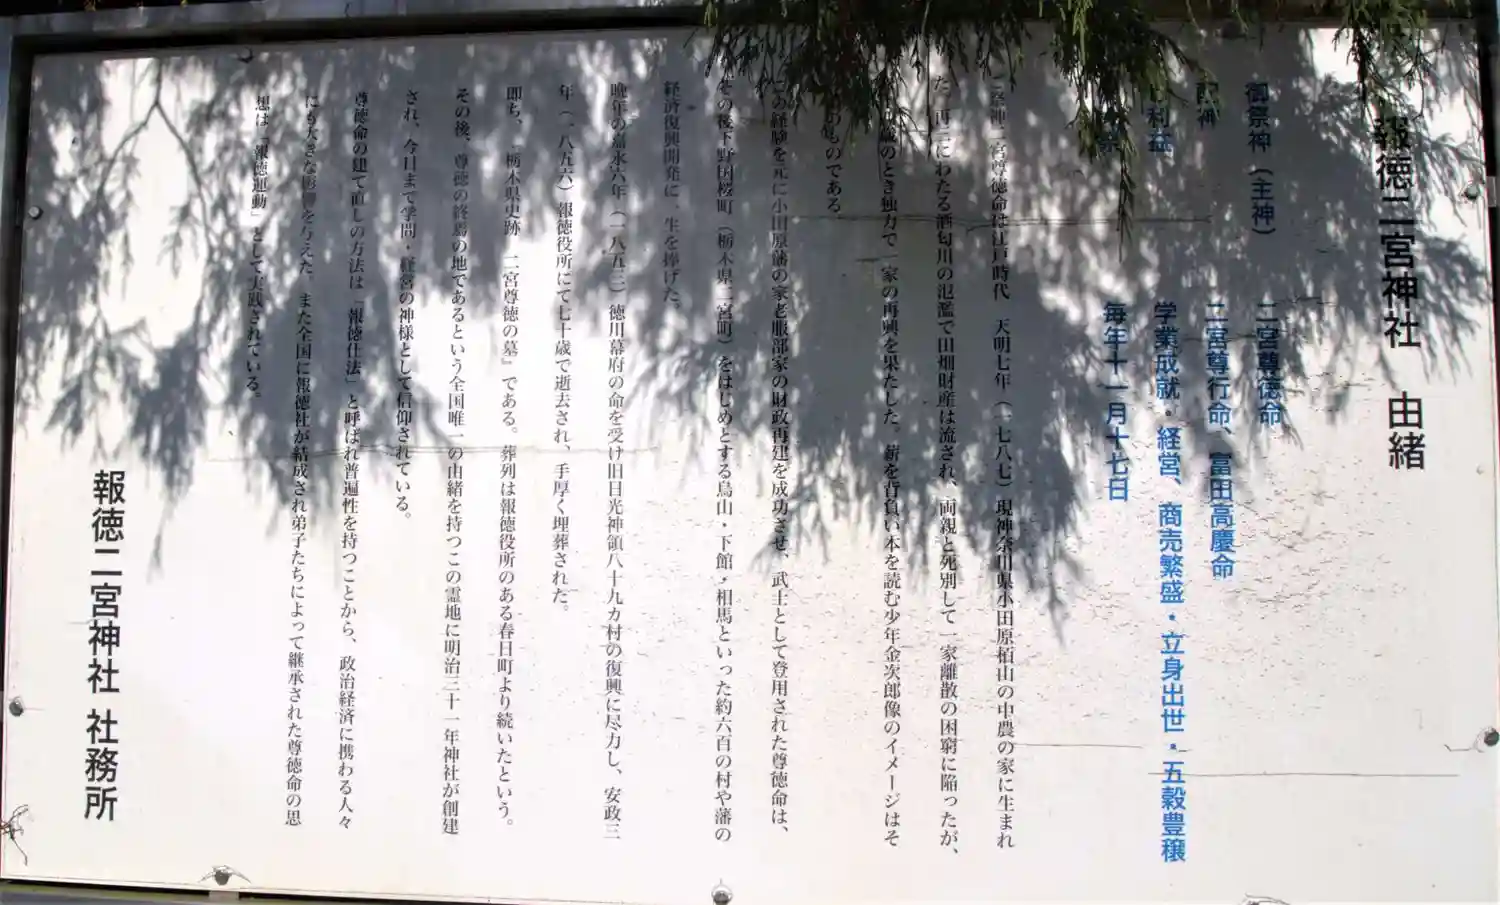 報徳二宮神社 由緒
御祭神（主神） 二宮尊徳命
配神 二宮尊行命、富田高慶命
利益 学業成就・経営、商売繁盛・立身出世・五穀豊穣
祭 毎年十一月十七日
祭神二宮尊徳命は江戸時代 天明七年（一七八七）現神奈川県小田原栢山の中農の家に生まれ
た。再三にわたる酒匂川の氾濫で田畑財産は流され、両親と死別して一家離散の困窮に陥ったが、
歳のとき独力で一家の再興を果たした。薪を背負い本を読む少年金次郎像のイメージはそ
のものである
この経験を元に小田原藩の家老服部家の財政再建を成功させ、武士として登用された尊徳命は、
その後下野国桜町（栃木県二宮町）をはじめとする烏山・下館・相馬といった約六百の村や藩の
経済復興開発に一生を捧げた。
晩年の嘉永六年（一八五三）徳川幕府の命を受け旧日光神領八十九カ村の復興に尽力し、安政三
年（一八五六）報徳役所にて七十歳で逝去され、手厚く埋葬された。
即ち、『栃木県史跡 二宮尊徳の墓』である。葬列は報徳役所のある春日町より続いたという。
その後、尊徳の終焉の地であるという全国唯一の由緒を持つこの霊地に明治三十一年神社が創建
され、今日まで学問・経営の神様として信仰されている。
尊徳命の建て直しの方法は『報徳仕法』と呼ばれ普遍性を持つことから、政治経済に携わる人々
にも大きな影響を与えた。また全国に報徳社が結成され弟子たちによって継承された尊徳命の思
想は『報徳運動』として実践されている。
報徳二宮神社 社務所